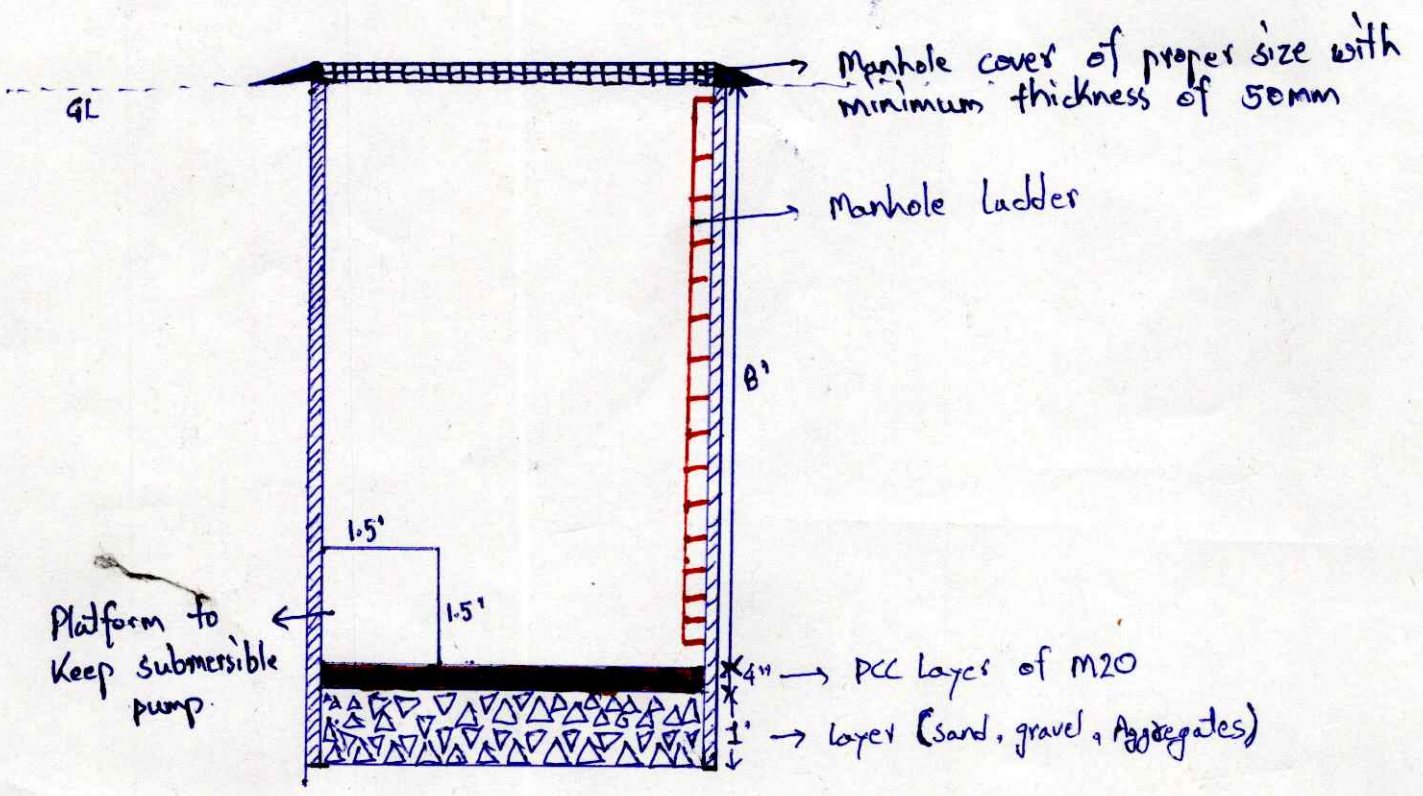 Manhole cover of proper size with
minimum thickness of 50mm
GL
Manhole ladder
8'
1.5'
1.5'
Platform to
Keep submersible
pump.
4" → PCC Layer of M20
1' → Layer (sand, gravel, Aggregates)